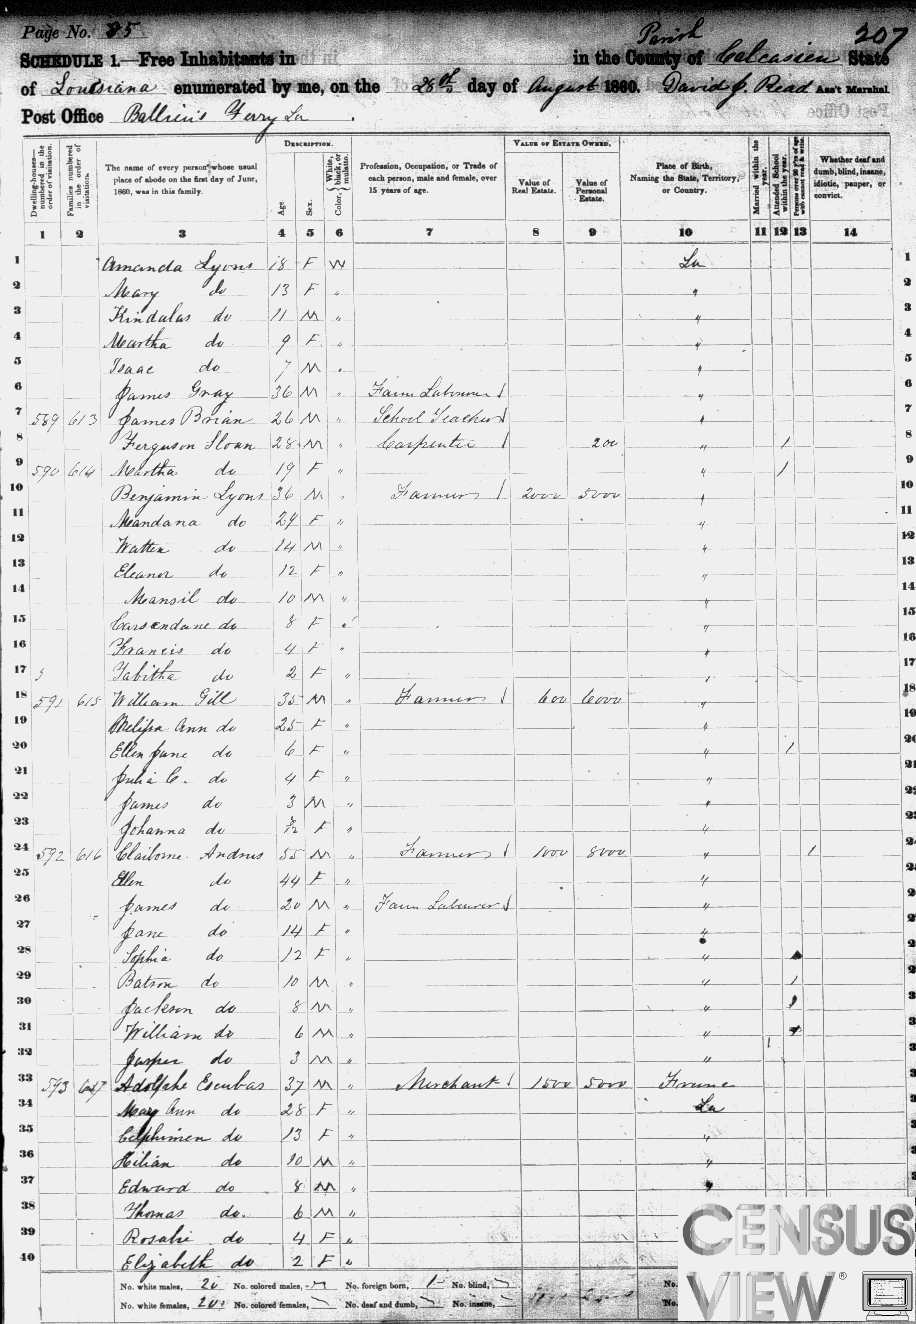 Page No. 25 207
Parish
SCHEDULE 1.—Free Inhabitants in in the County of Calcasieu State
of Louisiana enumerated by me, on the 28th day of August 1860. David J. Read Ass't Marshal
Post Office Ballieu's Ferry La.
Dwelling-houses—numbered in the order of visitation.
Families numbered in the order of visitation.
The name of every person whose usual place of abode on the first day of June, 1860, was in this family.
DESCRIPTION.
Age
Sex.
Color, White, black, or mulatto.
Profession, Occupation, or Trade of each person, male and female, over 15 years of age.
VALUE OF ESTATE OWNED.
Value of Real Estate.
Value of Personal Estate.
Place of Birth, Naming the State, Territory, or Country.
Married within the year.
Attended School within the year.
Persons over 20 y'rs of age who cannot read & write.
Whether deaf and dumb, blind, insane, idiotic, pauper, or convict.
1 2 3 4 5 6 7 8 9 10 11 12 13 14
1 Amanda Lyons 18 F W La 1
2 Mary do 13 F " " 2
3 Kindalas do 11 M " " 3
4 Martha do 9 F " " 4
5 Isaac do 7 M " " 5
6 James Gray 36 M " Farm Labourer / " 6
7 589 613 James Brian 26 M " School Teacher / " 7
8 Ferguson Sloan 28 M " Carpenter / 200 " / 8
9 590 614 Martha do 19 F " " / 9
10 Benjamin Lyons 36 M " Farmer / 2000 5000 " 10
11 Mandana do 29 F " " 11
12 Watten do 14 M " " 12
13 Eleanor do 12 F " " 13
14 Mansil do 10 M " " 14
15 Carsendane do 8 F " " 15
16 Francis do 4 F " " 16
17 Tabitha do 2 F " " 17
18 591 615 William Gill 35 M " Farmer / 600 6000 " 18
19 Melissa Ann do 25 F " " 19
20 Ellen Jane do 6 F " " / 20
21 Julia C. do 4 F " " 21
22 James do 3 M " " 22
23 Johanna do F " " 23
24 592 616 Claiborne Andrus 55 M " Farmer / 1000 8000 " / 24
25 Ellen do 44 F " " 25
26 James do 20 M " Farm Labourer / " 26
27 Jane do 14 F " " 27
28 Sophia do 12 F " " / 28
29 Batson do 10 M " " / 29
30 Jackson do 8 M " " / 3
31 William do 6 M " " / 3
32 Jasper do 3 M " " 3
33 593 617 Adolphe Escubas 37 M " Merchant / 1500 5000 France 3
34 Mary Ann do 28 F " La 3
35 Celphimen do 13 F " " 3
36 Hilian do 10 M " " 3
37 Edward do 8 M " " 3
38 Thomas do. 6 M "
39 Rosalie do 4 F "
40 Elizabeth do 2 F "
No. white males, 20 No. colored males, No. foreign born, 1 No. blind, No.
No. white females, 20 No. colored females, No. deaf and dumb, No. insane, No.
CENSUS
VIEW®